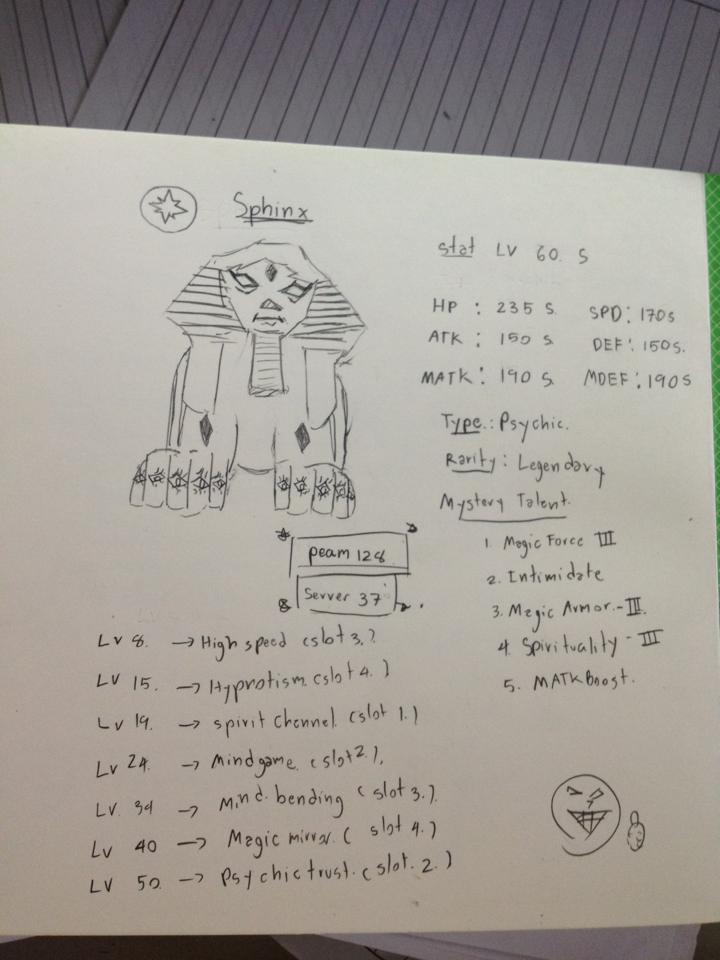 Sphinx
stat LV 60. S
HP : 235 S. SPD : 170 s
ATK : 150 s. DEF : 150 s.
MATK : 190 s. MDEF : 190 S
Type : Psychic.
Rarity : Legendary
Mystery Talent.
1. Magic Force III
2. Intimidate
3. Magic Armor - III.
4. Spirituality - III
5. MATK Boost.
peam 128
Server 37
Lv 8. → High speed (slot 3.)
LV 15. → Hyprotism (slot 4.)
LV 19. → spirit channel. (slot 1.)
LV 24. → Mindgame. (slot 2.).
LV. 34 → Mind. bending (slot 3.).
LV 40 → Magic mirror. (slot 4.)
LV 50. → Psychic trust. (slot. 2.)